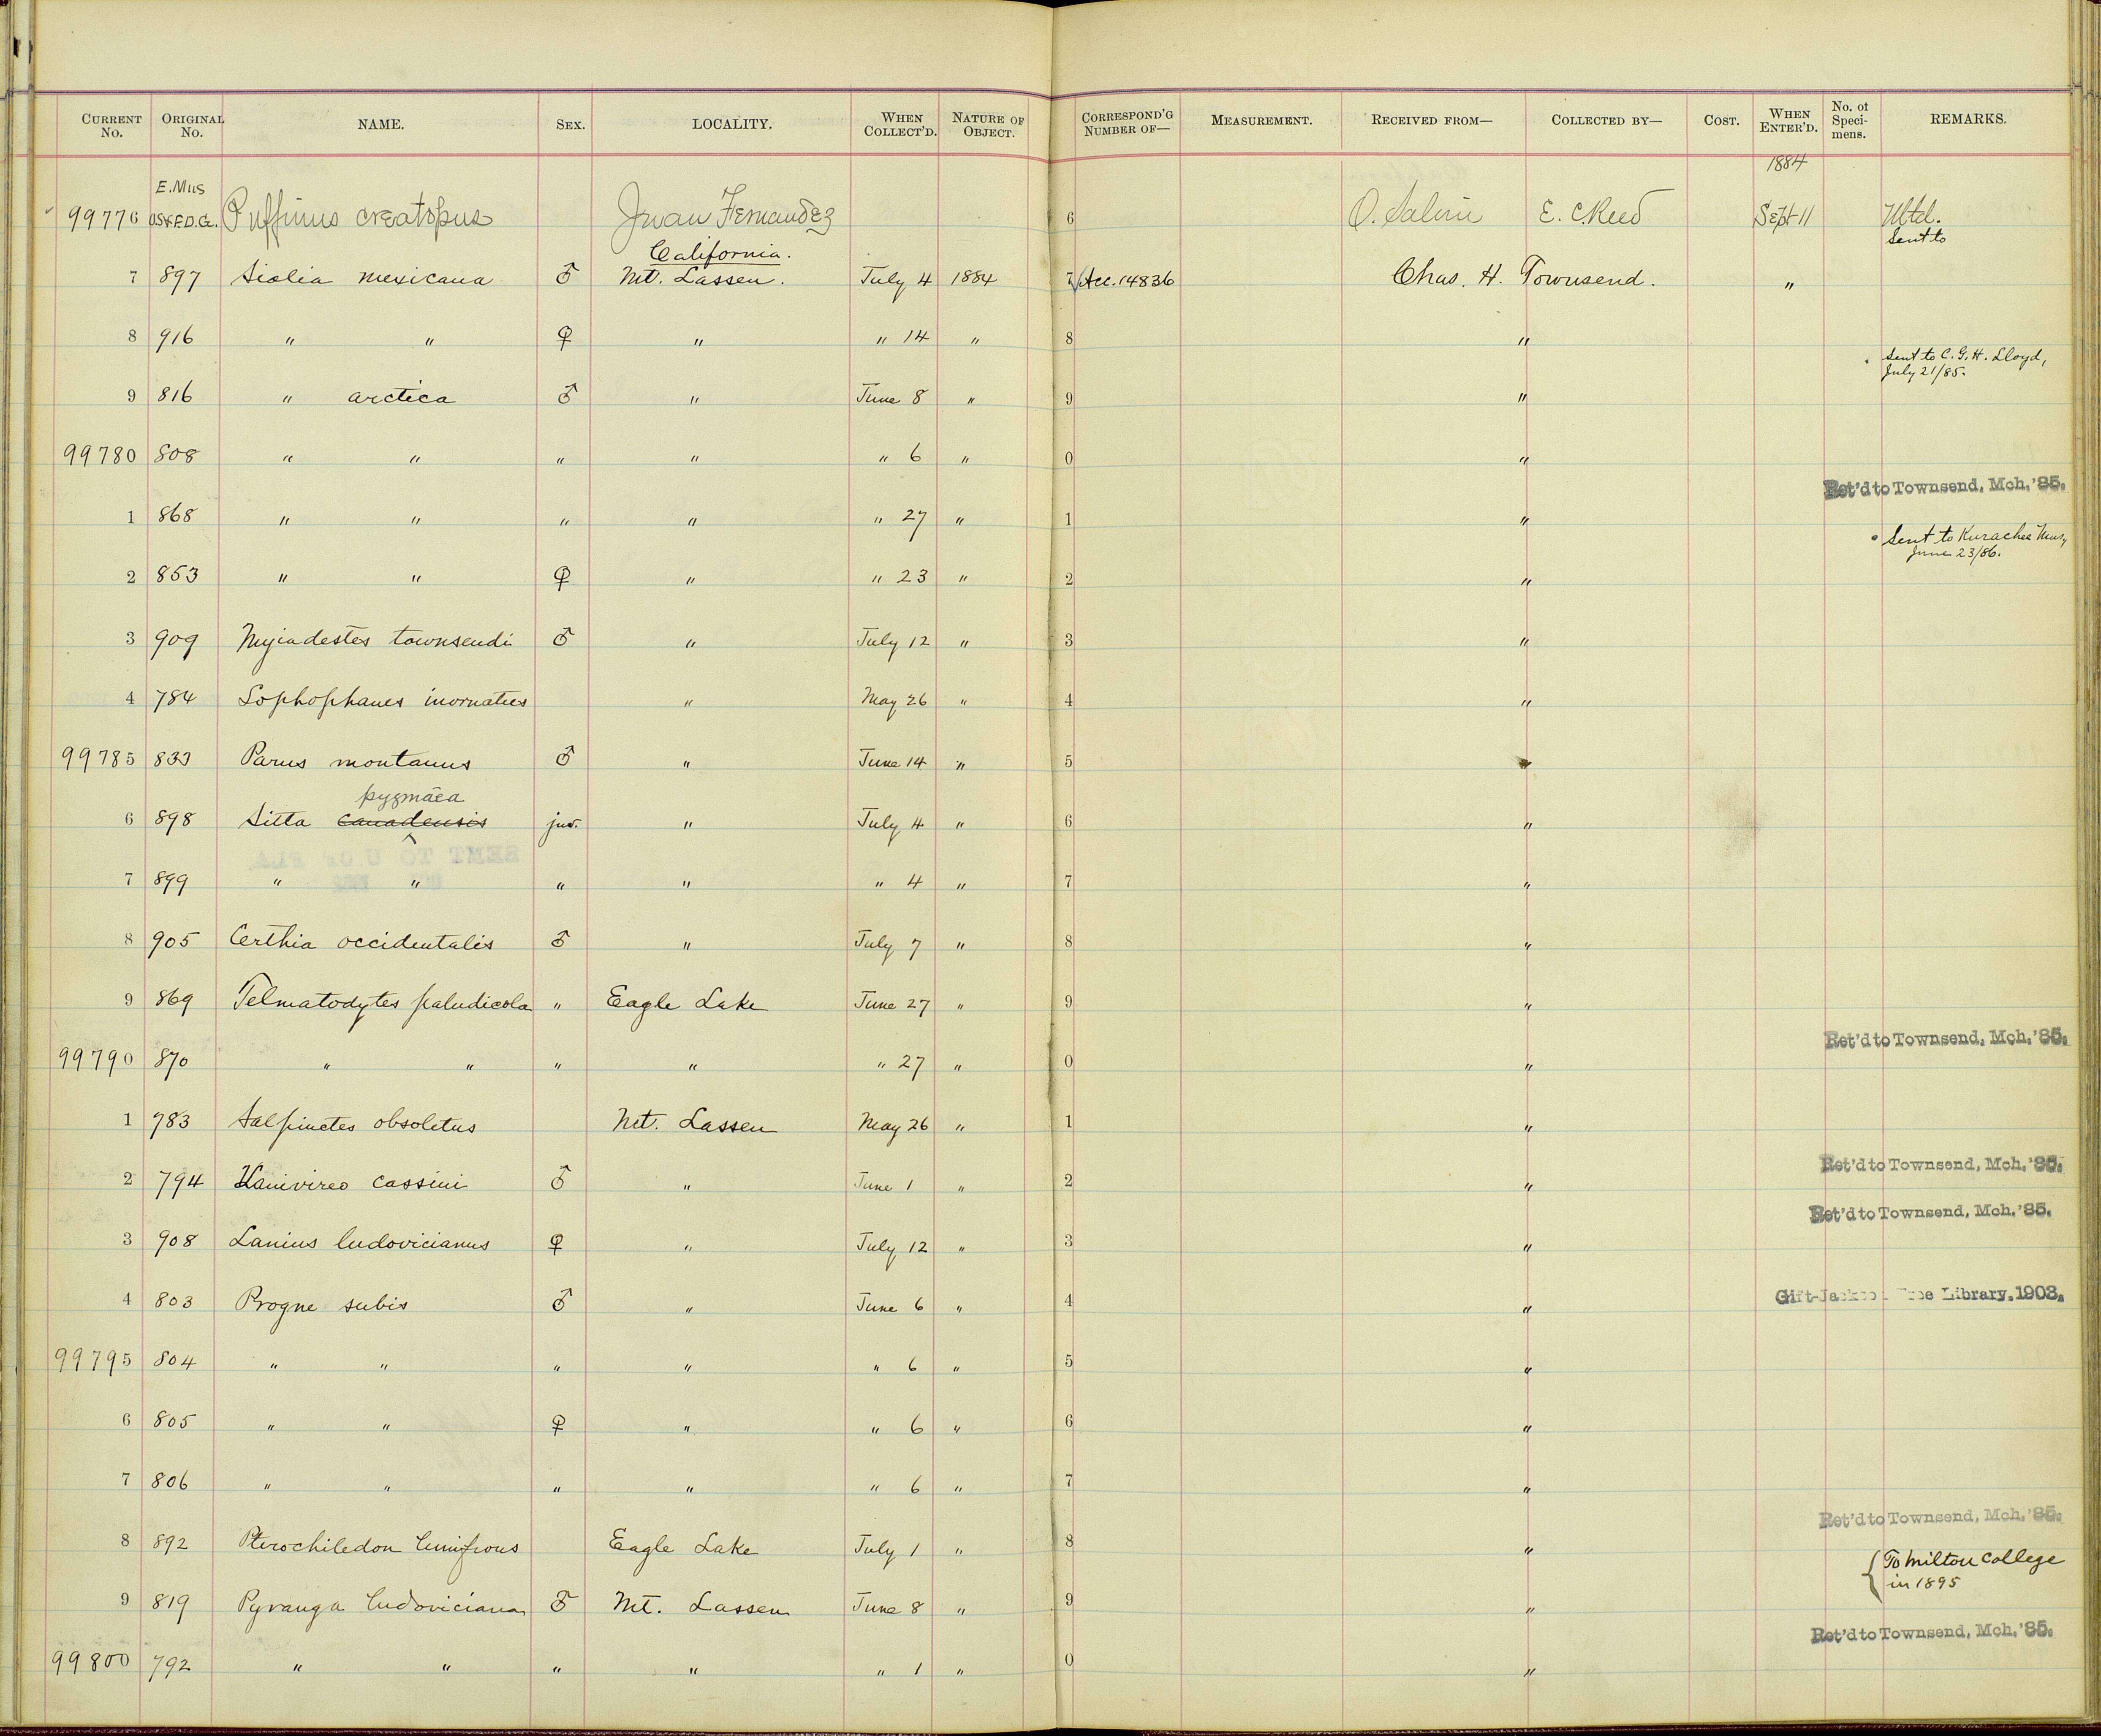 CURRENT No. ORIGINAL No. NAME. SEX. LOCALITY. WHEN COLLECT'D. NATURE OF OBJECT. CORRESPOND'G NUMBER OF— MEASUREMENT. RECEIVED FROM— COLLECTED BY— COST. WHEN ENTER'D. No. of Speci-mens. REMARKS.
1884
E. Mus
99776 O.S.&F.D.G. Puffinus creatopus Juan Fernandez 6 O. Salvin E. C. Reed Sept 11 Mtd.
California. Sent to
7 897 Sialia mexicana ♂ Mt. Lassen. July 4 1884 7 Acc. 14836 Chas. H. Townsend. "
8 916 " " ♀ " " 14 " 8 "
Sent to C. G. H. Lloyd,
July 21/85.
9 816 " arctica ♂ " June 8 " 9 "
99780 808 " " " " " 6 " 0 "
Ret'd to Townsend, Mch. '85.
1 868 " " " " " 27 " 1 "
Sent to Kurachee Mus,
June 23/86.
2 853 " " ♀ " " 23 " 2 "
3 909 Myiadestes townsendi ♂ " July 12 " 3 "
4 784 Lophophanes inornatus " May 26 " 4 "
99785 833 Parus montanus ♂ " June 14 " 5 "
pygmæa
6 898 Sitta canadensis juv. " July 4 " 6 "
7 899 " " " " " 4 " 7 "
8 905 Certhia occidentalis ♂ " July 7 " 8 "
9 869 Telmatodytes paludicola " Eagle Lake June 27 " 9 "
Ret'd to Townsend, Mch. '85.
99790 870 " " " " " 27 " 0 "
1 783 Salpinctes obsoletus Mt. Lassen May 26 " 1 "
Ret'd to Townsend, Mch. '85.
2 794 Lanivireo cassini ♂ " June 1 " 2 "
Ret'd to Townsend, Mch. '85.
3 908 Lanius ludovicianus ♀ " July 12 " 3 "
Gift-Jackson Free Library. 1903.
4 803 Progne subis ♂ " June 6 " 4 "
99795 804 " " " " " 6 " 5 "
6 805 " " ♀ " " 6 " 6 "
7 806 " " " " " 6 " 7 "
Ret'd to Townsend, Mch. '85.
8 892 Pterochiledon lunifrons Eagle Lake July 1 " 8 "
To Milton College
in 1895
9 819 Pyranga ludoviciana ♂ Mt. Lassen June 8 " 9 "
Ret'd to Townsend, Mch. '85.
99800 792 " " " " " 1 " 0 "